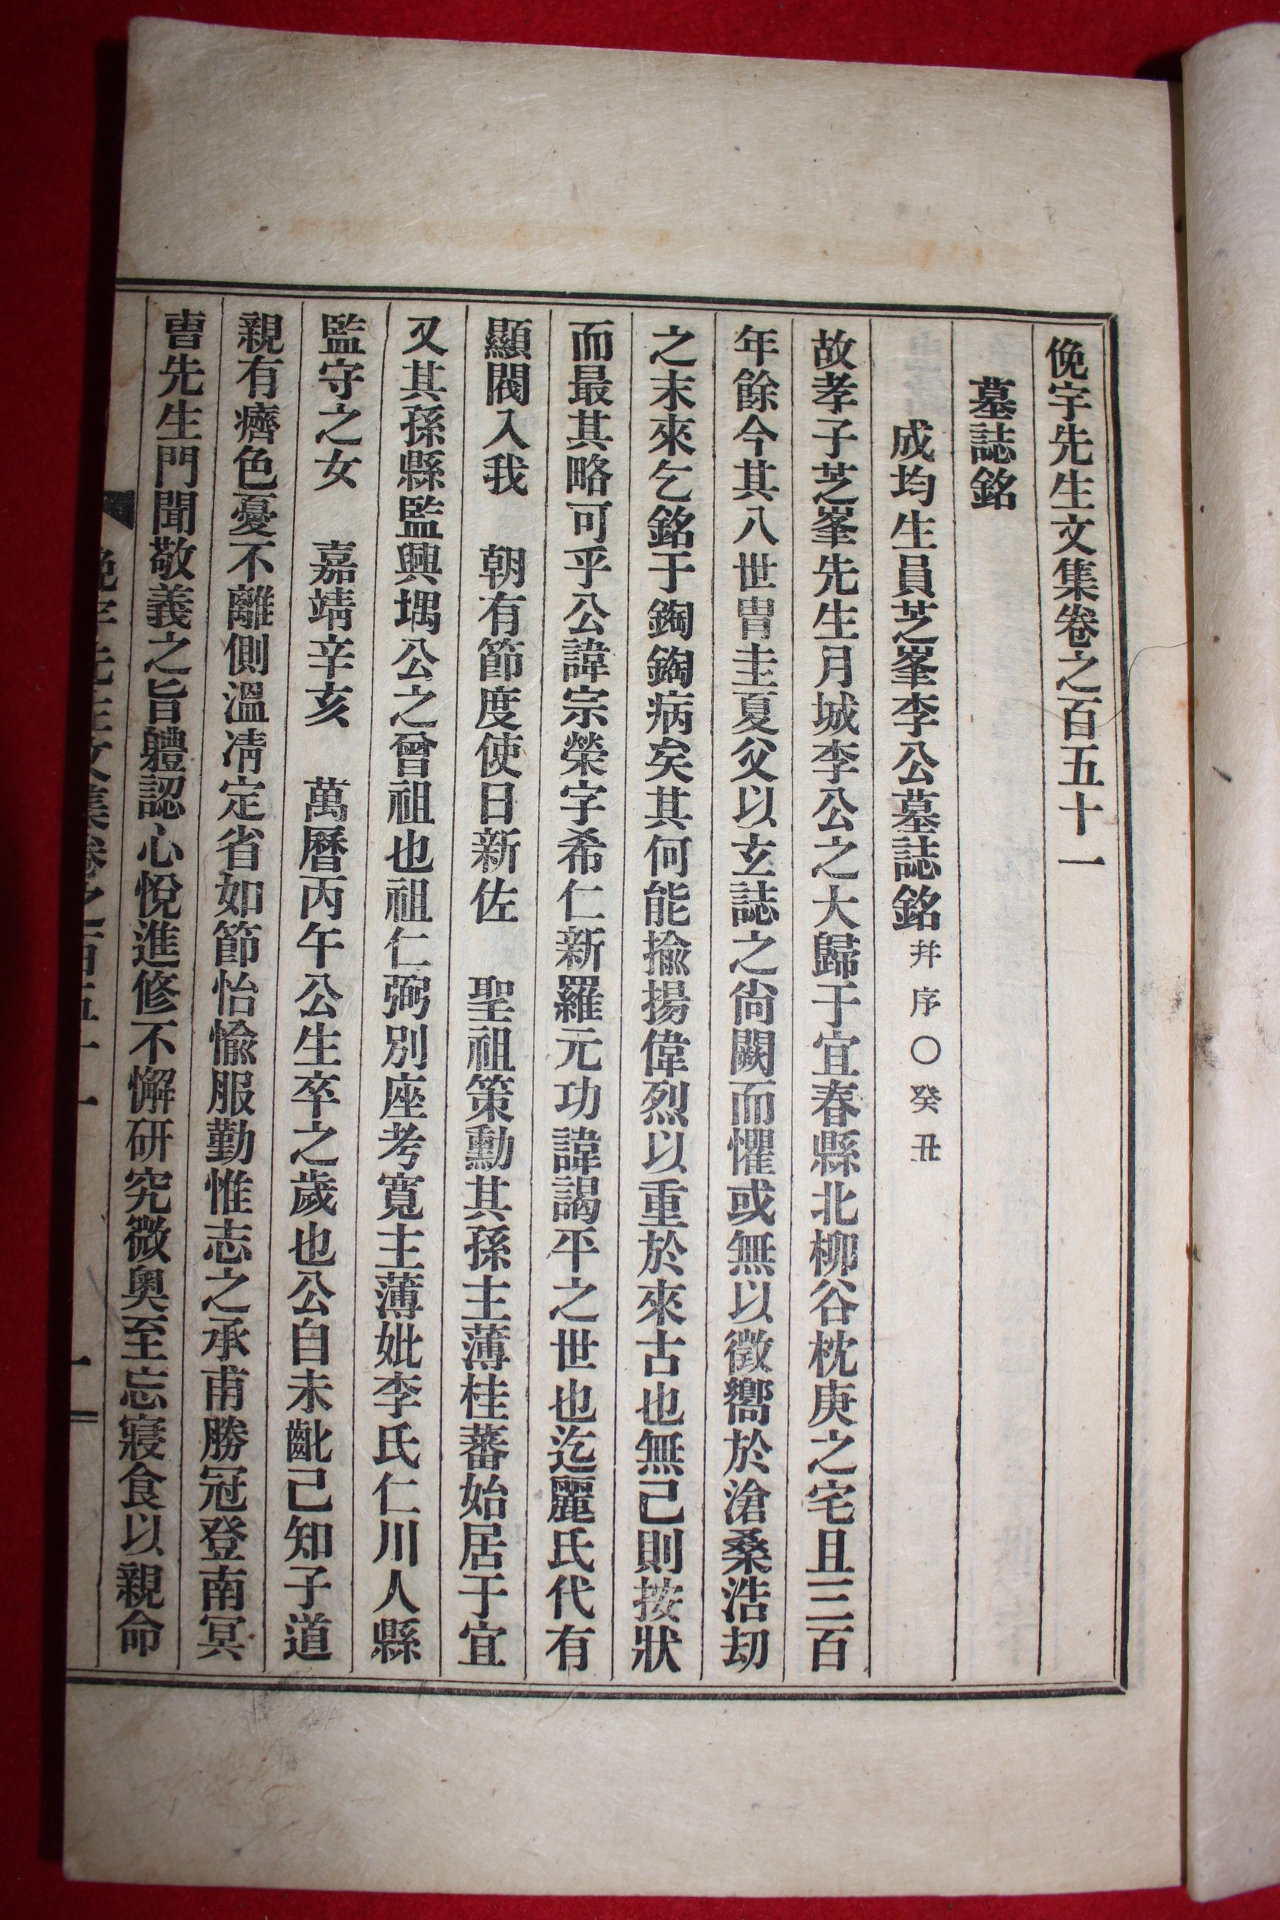 俛宇先生文集卷之百五十一
墓誌銘
成均生員芝峯李公墓誌銘幷序○癸丑
故孝子芝峯先生月城李公之大歸于宜春縣北柳谷枕庚之宅且三百
年餘今其八世胄圭夏父以玄誌之尙闕而懼或無以徵嚮於滄桑浩刧
之末來乞銘于鋾鋾病矣其何能揄揚偉烈以重於來古也無已則按狀
而最其略可乎公諱宗榮字希仁新羅元功諱謁平之世也迄麗氏代有
顯閥入我　朝有節度使日新佐　聖祖策勳其孫主薄桂蕃始居于宜
又其孫縣監興堣公之曾祖也祖仁弼別座考寬主薄妣李氏仁川人縣
監守之女　嘉靖辛亥　萬曆丙午公生卒之歲也公自未齔已知子道
親有癠色憂不離側溫凊定省如節怡愉服勤惟志之承甫勝冠登南冥
曺先生門聞敬義之旨體認心悅進修不懈硏究微奧至忘寢食以親命
俛宇先生文集卷之百五十一
一